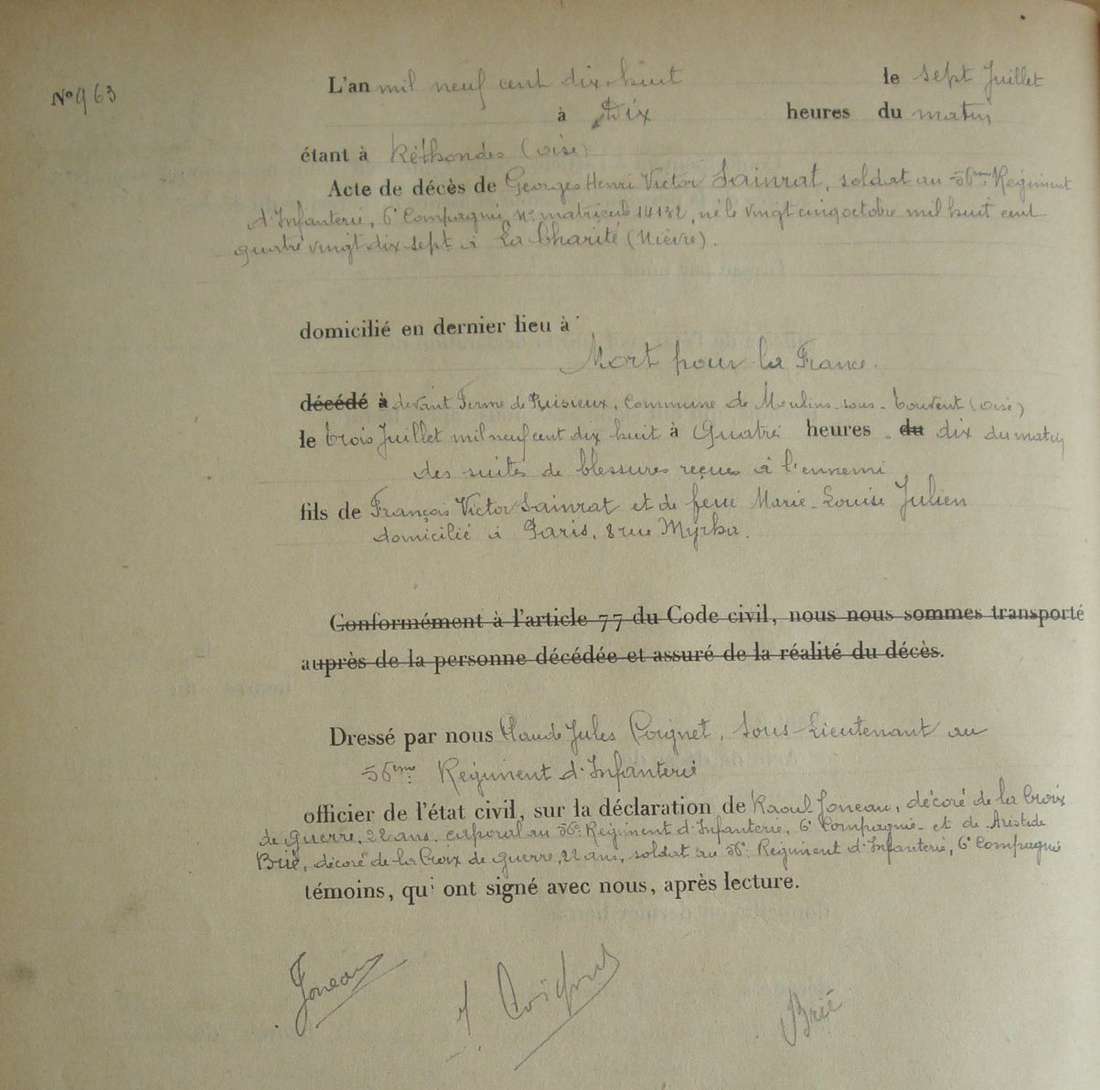 N° 963
L'an mil neuf cent dix-huit le sept Juillet
à Dix heures du matin
étant à Réthondes (Oise)
Acte de décès de Georges Henri Victor Sainrat, soldat au 56ème Régiment
d'Infanterie, 6e Compagnie, n° matricule 14132, né le vingt cinq octobre mil huit cent
quatre vingt dix sept à La Charité (Nièvre).
domicilié en dernier lieu à
Mort pour la France.
décédé à devant Ferme de Puisieux, Commune de Moulins-sous-Touvent (Oise)
le trois Juillet mil neuf cent dix huit à Quatre heures du dix du matin
des suites de blessures reçues à l'ennemi
fils de François Victor Sainrat et de feue Marie-Louise Julien
domicilié à Paris, 8 rue Myrha.
Conformément à l'article 77 du Code civil, nous nous sommes transporté
auprès de la personne décédée et assuré de la réalité du décès.
Dressé par nous Claude Jules Coignet, Sous-Lieutenant au
56ème Régiment d'Infanterie
officier de l'état civil, sur la déclaration de Raoul Joneau, décoré de la Croix
de Guerre, 22 ans, caporal au 56e Régiment d'Infanterie, 6e Compagnie et de Aristide
Brié, décoré de la Croix de Guerre, 22 ans, soldat au 56e Régiment d'Infanterie, 6e Compagnie
témoins, qui ont signé avec nous, après lecture.
Joneau Coignet Brié